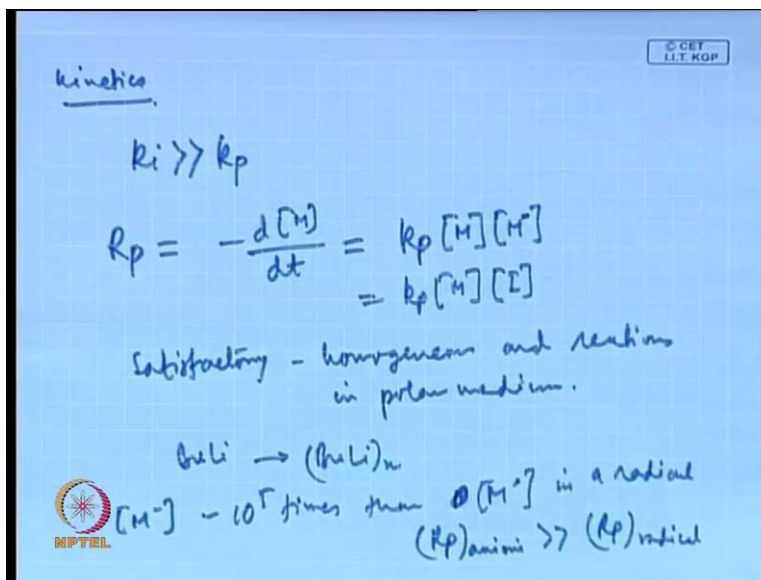 © CET
I.I.T. KGP
kinetics
ki >> kp
Rp = - d[M]/dt = kp [M][M⁻]
= kp [M][I]
Satisfactory - homogeneous and reactions
in polar medium.
BuLi → (BuLi)n
[M⁻] - 10⁵ times than [M•] in a radical
(Rp)anionic >> (Rp)radical
NPTEL